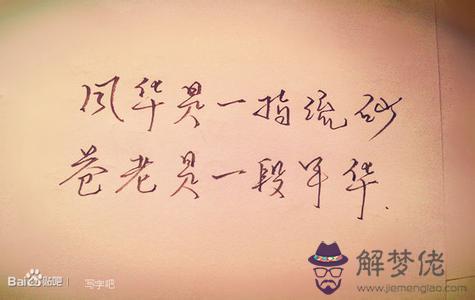 风华是一指流砂
苍老是一段年华.
Baidu贴吧 写字吧
解梦佬
www.jiemenglao.com